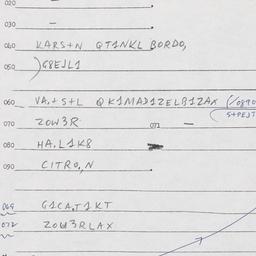 020 .
030 — .
040 KARS+N QT1NKL BORDO,
050 )G8EJL1
060 VA.+S+L QK1MAD1ZELB1ZAX (/0890
S+PEJT
070 ZOW3R 071 —
080 HA.L1K8
090 CITRO,N .
069 G1CA,T1KT
072 ZOW3RLAX